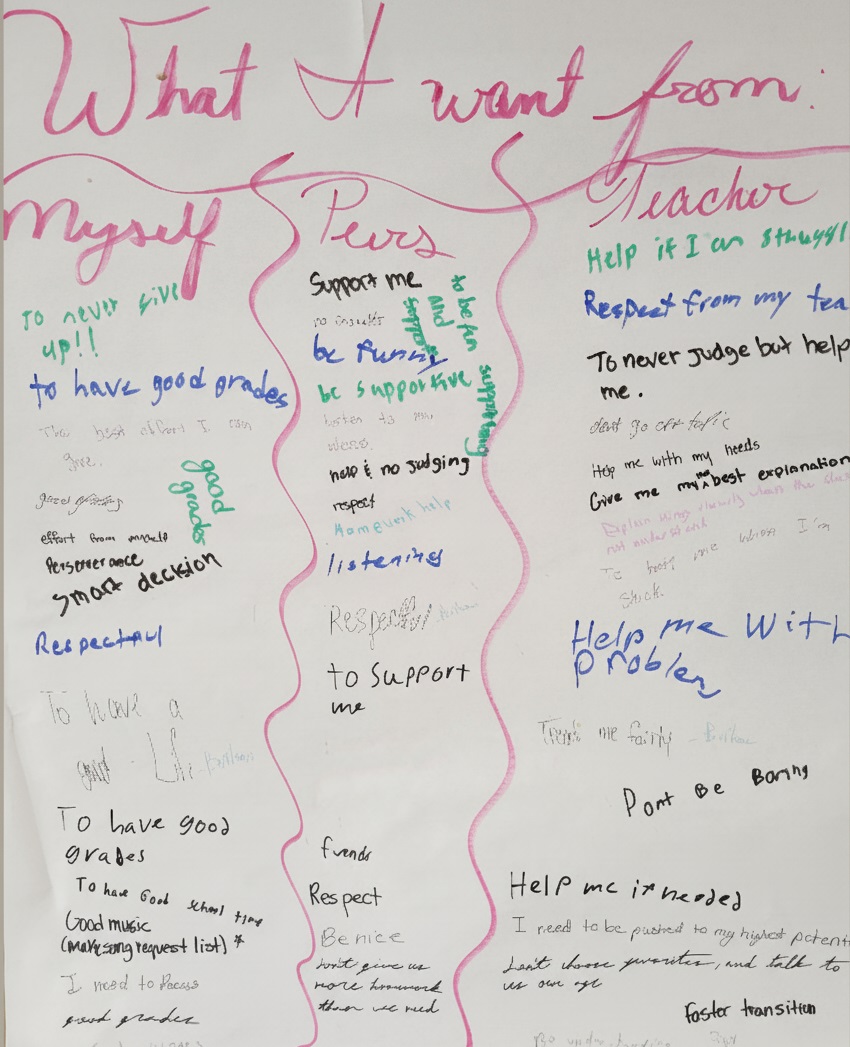 What I want from:
Myself
To never give
up!!
to have good grades
The best effort I can
give.
good
grades
effort from myself
Perserverance
smart decision
Respectful
To have a
good Life
To have good
grades
To have Good school time
Good music
(make song request list) *
I need to Process
good grades
Peers
Support me
no insults
be funny
be supportive
to be fun
and
supporting
listen to my
help & no judging
respect
Homework help
listening
Respectful
to support
me
friends
Respect
Be nice
Don't give us
more homework
than we need
Teacher
Help if I am struggl
Respect from my tea
To never judge but help
me.
dont go off topic
Help me with my needs
Give me my the best explanation
Explain things clearly when the
not understand
To help me when I'm
stuck.
Help me With
problem
Treat me fairly
Dont Be Boring
Help me if needed
I need to be pushed to my highest potenti
Don't choose favorites, and talk to
us our age
Faster transition